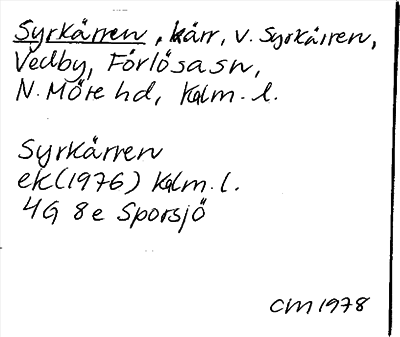 Syrkärren, kärr, v. Syrkärren,
Vedby, Förlösa sn,
N. Möre hd, Kalm. l.
Syrkärren
ek (1976) Kalm. l.
4G 8e Sporsjö
CM 1978